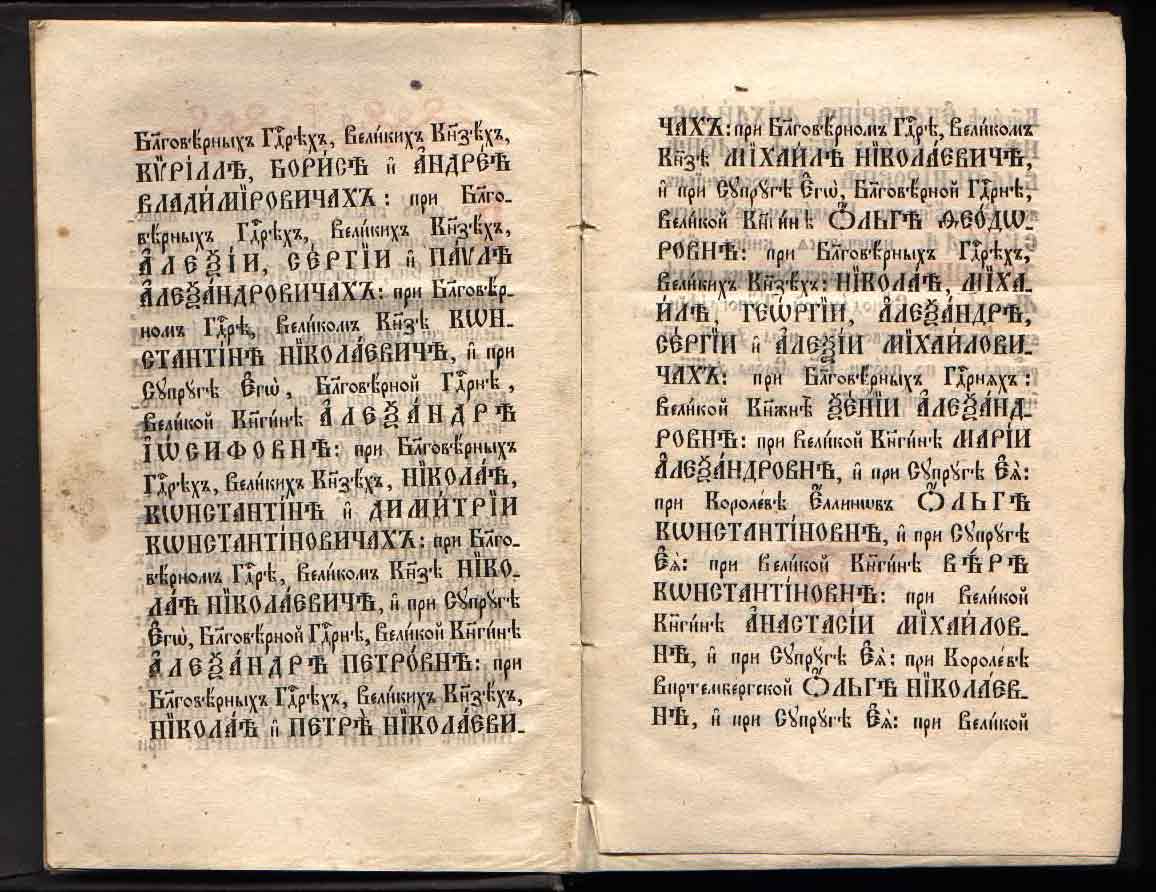 Бл҃говѣ́рныхъ Гдⷭ҇рѣхъ, Вели́кихъ Кнѧ҃зѣхъ,
КѴРІ́ЛЛѢ, БОРИ́СѢ и҆ А҆НДРЕ́Ѣ
ВЛАДИ́МІРОВИЧАХЪ : при Бл҃го-
вѣ́рныхъ Гдⷭ҇рѣхъ, Вели́кихъ Кнѧ҃зѣхъ,
А҆ЛЕѮІ́И, СЕ́РГІИ и҆ ПА́ѴЛѢ
А҆ЛЕѮА́НДРОВИЧАХЪ : при Бл҃говѣ́р-
номъ Гдⷭ҇рѣ, Вели́комъ Кнѧ҃зѣ КѠН-
СТАНТІ́НѢ НІКОЛА́ЕВИЧѢ, и҆ при
Сꙋпрꙋ́гѣ Є҆гѡ̀, Бл҃говѣ́рной Гдⷭ҇рнѣ,
Вели́кой Кнѧ҃ги́нѣ А҆ЛЕѮА́НДРѢ
І҆Ѡ́СИФОВНѢ : при Бл҃говѣ́рныхъ
Гдⷭ҇рѣхъ, Вели́кихъ Кнѧ҃зѣхъ, НІКОЛА́Ѣ,
КѠНСТАНТІ́НѢ и҆ ДИМИ́ТРІИ
КѠНСТАНТІ́НОВИЧАХЪ : при Бл҃го-
вѣ́рномъ Гдⷭ҇рѣ, Вели́комъ Кнѧ҃зѣ НІКО-
ЛА́Ѣ НІКОЛА́ЕВИЧѢ, и҆ при Сꙋпрꙋ́гѣ
Є҆гѡ̀, Бл҃говѣ́рной Гдⷭ҇рнѣ, Вели́кой Кнѧ҃ги́нѣ
А҆ЛЕѮА́НДРѢ ПЕТРО́ВНѢ : при
Бл҃говѣ́рныхъ Гдⷭ҇рѣхъ, Вели́кихъ Кнѧ҃зѣхъ,
НІКОЛА́Ѣ и҆ ПЕТРѢ̀ НІКОЛА́ЕВИ-
ЧАХЪ : при Бл҃говѣ́рномъ Гдⷭ҇рѣ, Вели́комъ
Кнѧ҃зѣ МІХАИ́ЛѢ НІКОЛА́ЕВИЧѢ,
и҆ при Сꙋпрꙋ́гѣ Є҆гѡ̀, Бл҃говѣ́рной Гдⷭ҇рнѣ,
Вели́кой Кнѧ҃ги́нѣ Ѻ҆́ЛЬГѢ ѲЕОДѠ́-
РОВНѢ : при Бл҃говѣ́рныхъ Гдⷭ҇рѣхъ,
Вели́кихъ Кнѧ҃зѣхъ : НІКОЛА́Ѣ, МІХА-
И́ЛѢ, ГЕѠ́РГІИ, А҆ЛЕѮА́НДРѢ,
СЕ́РГІИ и҆ А҆ЛЕѮІ́И МІХА́ЙЛОВИ-
ЧАХЪ : при Бл҃говѣ́рныхъ Гдⷭ҇рнѧхъ :
Вели́кой Кнѧ҃жнѣ̀ ѮЕ́НІИ А҆ЛЕѮА́НД-
РОВНѢ : при Вели́кой Кнѧ҃ги́нѣ МАРІ́И
А҆ЛЕѮА́НДРОВНѢ, и҆ при Сꙋпрꙋ́гѣ Є҆ѧ̀ :
при Короле́вѣ Є҆́ллинѡвъ Ѻ҆́ЛЬГѢ
КѠНСТАНТІ́НОВНѢ, и҆ при Сꙋпрꙋ́гѣ
Є҆ѧ̀ : при Вели́кой Кнѧ҃ги́нѣ ВѢ́РѢ
КѠНСТАНТІ́НОВНѢ : при Вели́кой
Кнѧ҃ги́нѣ А҆НАСТАСІ́И МІХА́ЙЛОВ-
НѢ, и҆ при Сꙋпрꙋ́гѣ Є҆ѧ̀ : при Короле́вѣ
Виртембергской Ѻ҆́ЛЬГѢ НІКОЛА́ЕВ-
НѢ, и҆ при Сꙋпрꙋ́гѣ Є҆ѧ̀ : при Вели́кой